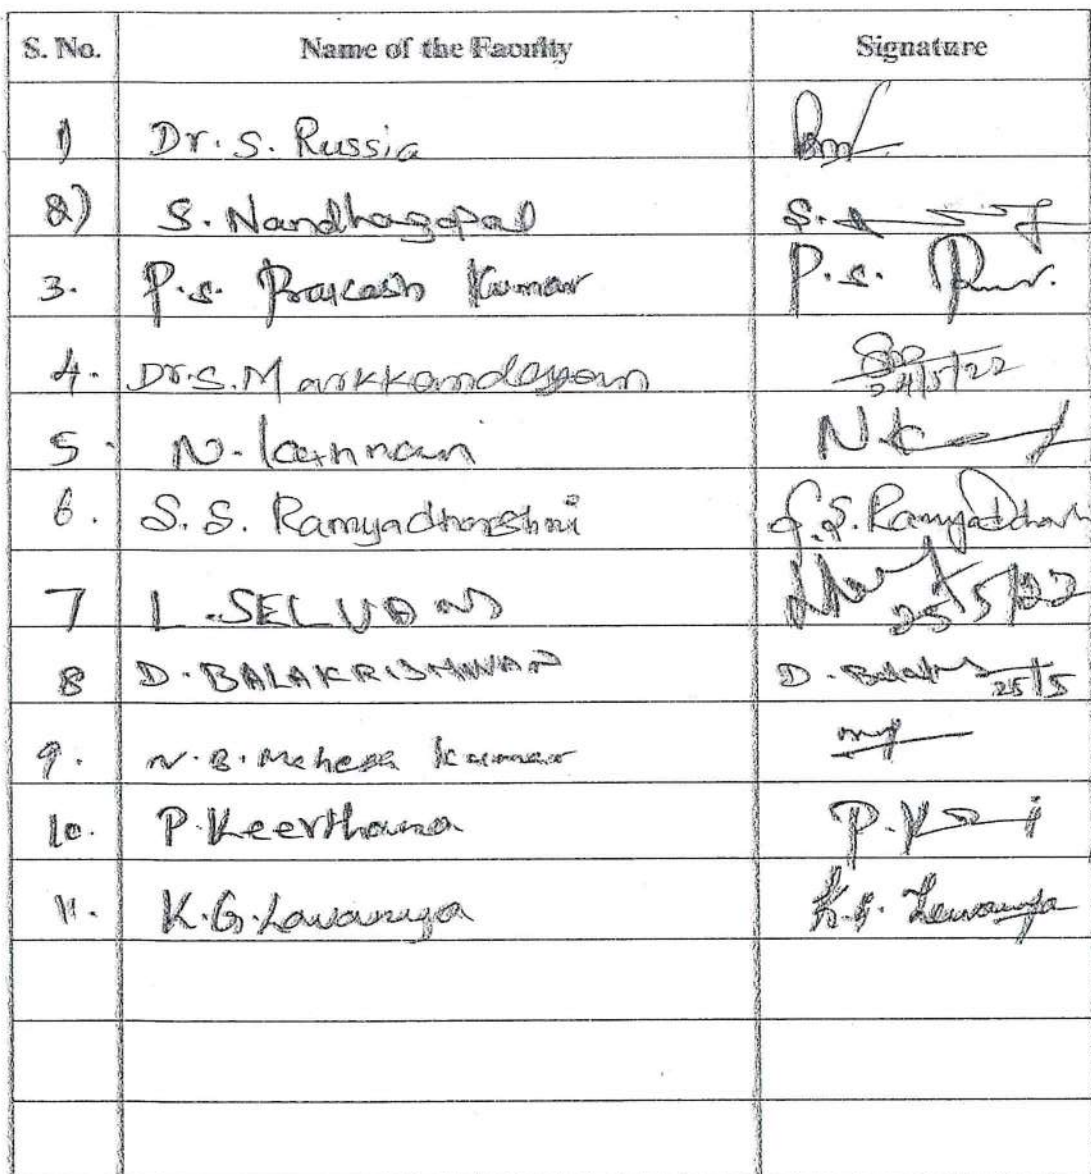 S. No. Name of the Faculty Signature
1) Dr. S. Russia
2) S. Nandhagopal S.
3. P.S. Prakash Kumar P.S.
4. Dr. S. Markkandeyan 24/5/22
5. N. Kannan N.
6. S. S. Ramyadharshni S.S. Ramyadharsh
7 L. SELVAN 25/5/22
8 D. BALAKRISHNAN D. 25/5
9. N. B. Mahesh Kumar
10. P. Keerthana P.
11. K.G. Lavanya K.G. Lavanya